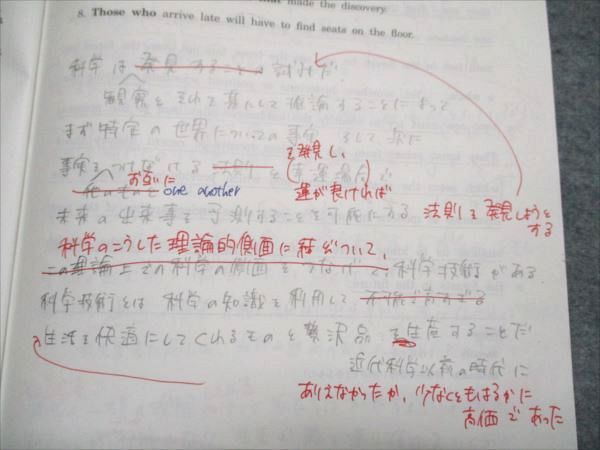 that made the discovery.
8. Those who arrive late will have to find seats on the floor.
科学は発見することの試みだ.
観察とそれを基にして推論することによって
まず特定の世界についての事実 そして次に
事実をつなげる法則 を発見し、
お互いに one another (運が良ければ)
未来の出来事を予測することを可能にする 法則を発見しようとする
科学のこうした理論的側面に結びついて、
この理論上での科学の側面をつなげて、科学技術がある
科学技術とは 科学の知識を利用して 不可能であった
生活を快適にしてくれるものと贅沢品を生産することだ
近代科学以前の時代に
ありえなかったか、少なくともはるかに
高価であった